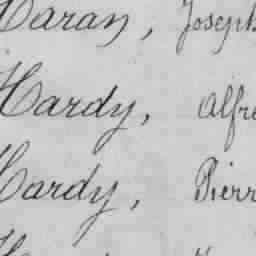 Haran, Joseph
Hardy, Alfre
Hardy, Pierr